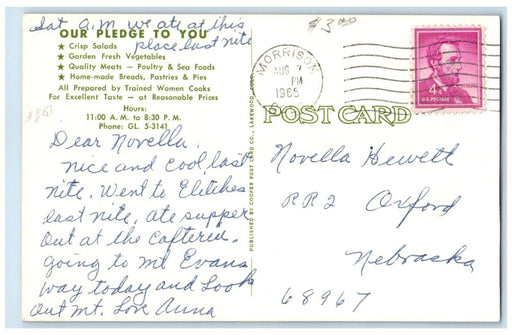 Sat A.M we ate at this
place last nite
OUR PLEDGE TO YOU
★ Crisp Salads
★ Garden Fresh Vegetables
★ Quality Meats — Poultry & Sea Foods
★ Home-made Breads, Pastries & Pies
All Prepared by Trained Women Cooks
For Excellent Taste — at Reasonable Prices
Hours:
11:00 A. M. to 8:30 P. M.
Phone: GL. 5-3141
Dear Novella,
nice and cool last
nite. Went to Elitches
last nite, ate supper
out at the caftered.
going to Mt Evans
way today and Look
out Mt. Love Anna
PUBLISHED BY COOPER POST CARD CO., LAKEWOOD, COLO.
$3.00
MORRISON
AUG 7
PM
1965
4¢
U.S. POSTAGE
POST CARD
Novella Hewett
RR 2 Oxford
Nebraska
68967